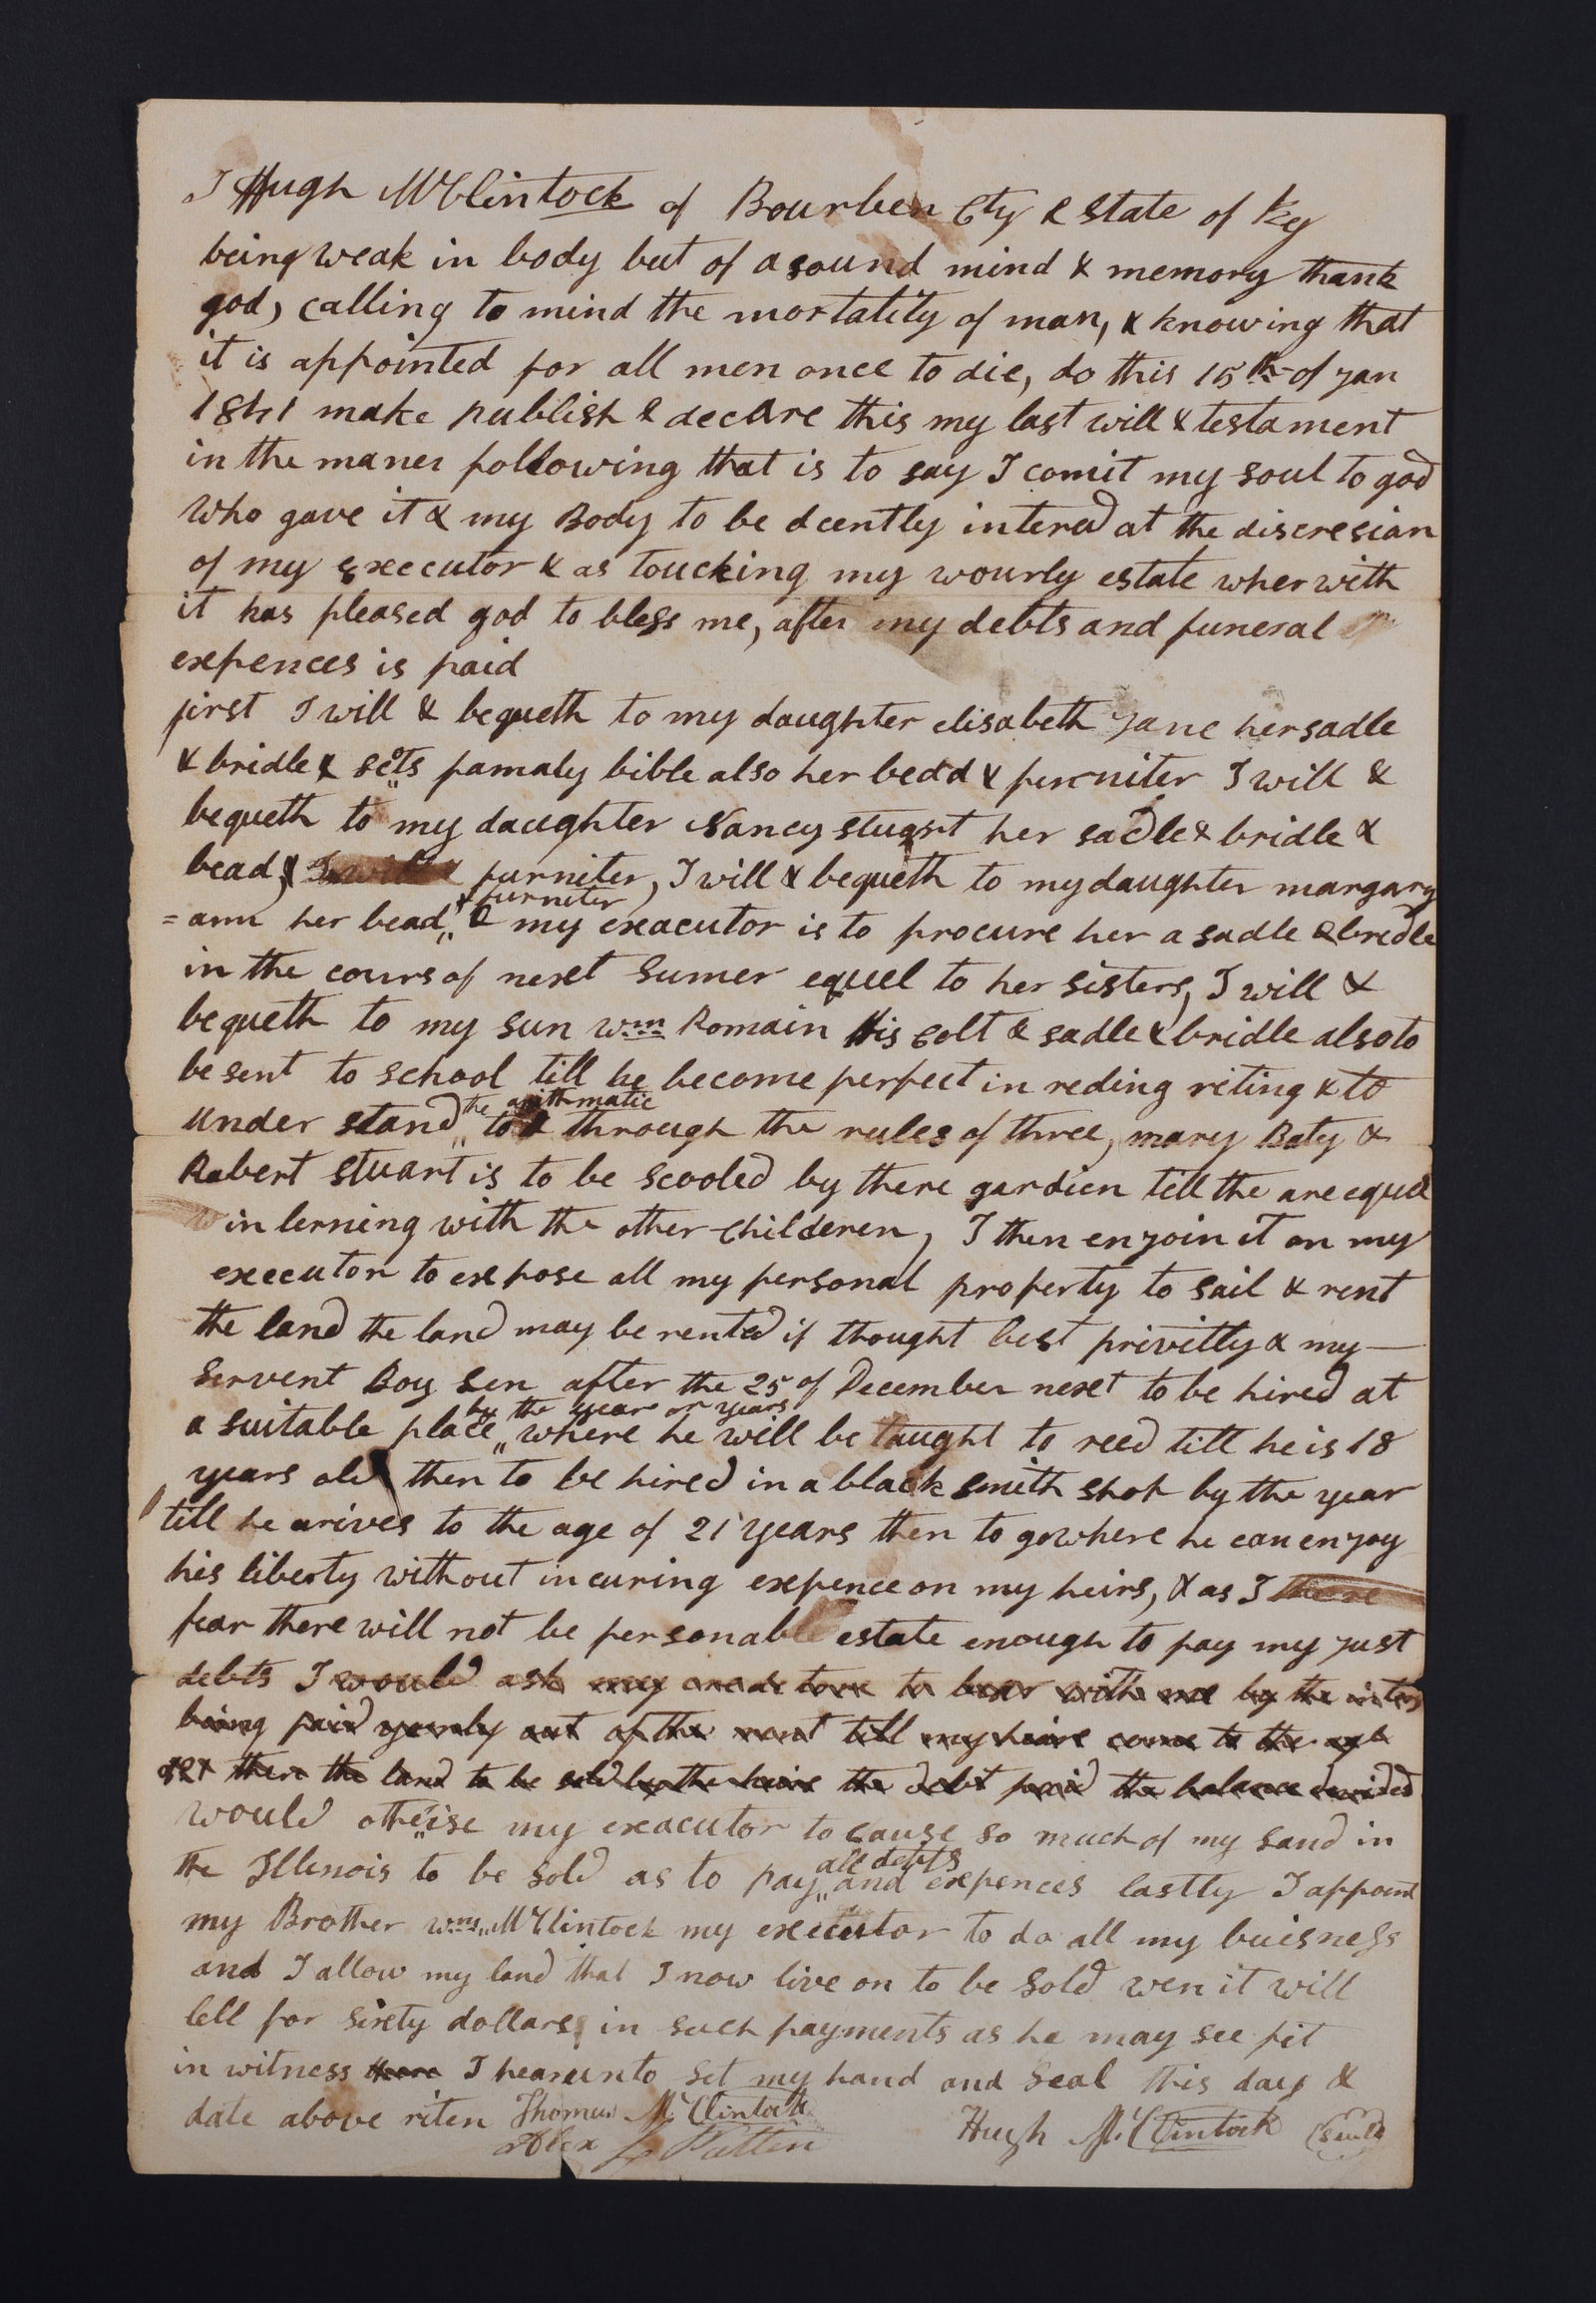 I Hugh McClintock of Bourben Cty & State of Ky
being weak in body but of a sound mind & memory thank
god, calling to mind the mortality of man, & knowing that
it is appointed for all men once to die, do this 15th of Jan
1841 make publish & declare this my last will & testament
in the maner following that is to say I comit my soul to god
who gave it & my Body to be dcently intered at the discresian
of my executor & as touching my wourly estate wherwith
it has pleased god to bless me, after my debts and funeral
expences is paid
first I will & bequeth to my daughter elisabeth Jane her sadle
& bridle & famaly bible also her bedd & furniter I will &
bequeth to my daughter Nancy stuart her sadle & bridle &
bead, & furniter, I will & bequeth to my daughter margary
& furniter
= ann her bead,, & my exacutor is to procure her a sadle & bredle
in the cours of next Sumer equel to her sisters, I will &
bequeth to my sun Wm Romain His colt & sadle & bridle also to
be sent to school till he become perfect in reding riting & to
the arithmatic
under stand,, to & through the rules of three, mary Baty &
Robert Stuart is to be scooled by there gardien till the are equel
in lerning with the other Childeren, I then enjoin it on my
executor to expose all my personal property to sail & rent
the land the land may be rented if thought best privitly & my
Servent Boy Sen after the 25 of December next to be hired at
by the year or years
a suitable place,, where he will be taught to reed till he is 18
years old then to be hired in a black smith shop by the year
till he arives to the age of 21 years then to go where he can enjoy
his liberty without incuring expence on my heirs, & as I there
fear there will not be personable estate enough to pay my just
debts I would ask my creditors to bear with me by the inters
being paid yearly out of the rent till my heirs come to the age
of 21 then the land to be sold by the heirs the debt paid the balance devided
would othe,,ise my exacutor to cause so much of my Land in
all debts
the Illenois to be sold as to pay,, and expences lastly I appoint
my Brother Wm McClintock my executor to do all my buisness
and I allow my land that I now live on to be sold wen it will
sell for sixty dollars in such payments as he may see fit
in witness there I heareunto set my hand and Seal this day &
date above riten Thomas McClintock
Alex Patten
Hugh McClintock (Seal)